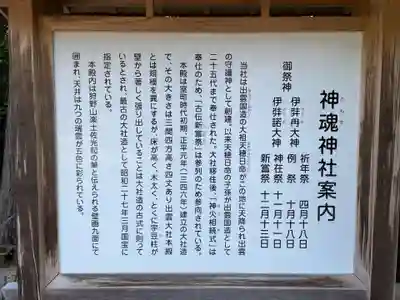 神魂神社案内
御祭神
伊弉冉大神
伊弉諾大神
祈年祭 四月十八日
例祭 十月十八日
神在祭 十二月十一日
新嘗祭 十二月十三日
当社は出雲国造の大祖天穂日命がこの地に天降られ出雲
の守護神として創建、以来天穂日命の子孫が出雲国造として
二十五代まで奉仕された。大社移住後も、「神火相続式」
奉仕のため、「古伝新嘗祭」は参列のため参向されている。
本殿は室町時代初期、正平元年(一三四六年)建立の大社造
で、その大きさは三間四方高さ四丈あり出雲大社本殿
とは規模を異にするが、床が高く、木太く、とくに宇豆柱が
壁から著しく張り出していることは大社造の古式に則って
いるとされ、最古の大社造として昭和二十七年三月国宝に
指定されている。
本殿内は狩野山楽土佐光起の筆と伝えられる壁画九面にて
囲まれ、天井は九つの瑞雲が五色に彩られている。